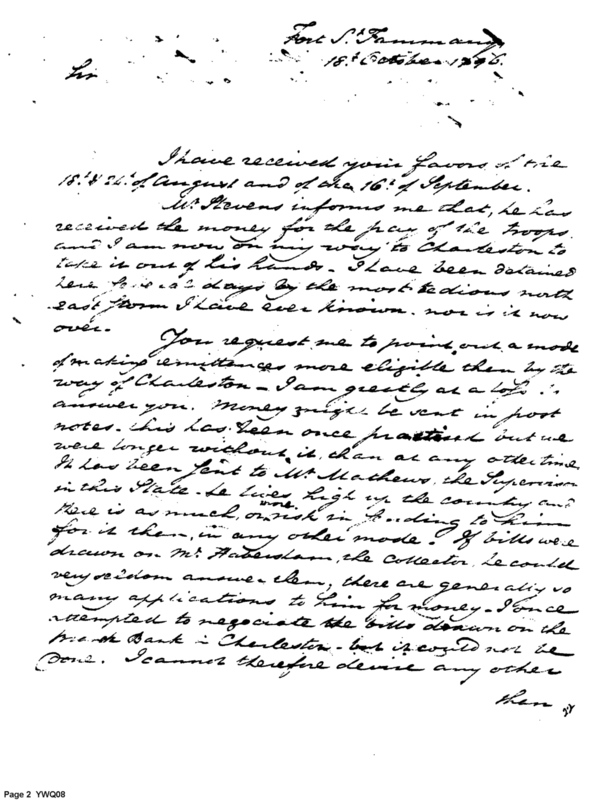 Fort St. Tammany
18t October 1796.
Sir
I have received your favors of the
18t & 24t of August and of the 16t of September.
Mr. Stevens informs me that, he has
received the money for the pay of the troops.
and I am now on my way to Charleston to
take it out of his hands. I have been detained
here days by the most tedious north
east storm I have ever known. nor is it now
over.
You request me to point out a mode
of making remittances more eligible then by the
way of Charleston - I am greatly at a loss to
answer you. Money might be sent in post
notes. this has been once practised but we
were longer without it, than at any other time
It has been sent to Mr. Mathews, the Supervisor
in this State. he lives high up the country and
there is as much, or more risk in sending to him
for it then, in any other mode. If bills were
drawn on Mr. Habersham, the Collector, he could
very seldom answer them; there are generally so
many applications to him for money. I once
attempted to negociate the bills drawn on the
Branch Bank in Charleston - but it could not be
Done. I cannot therefore devise any other
than
Page 2 YWQ08